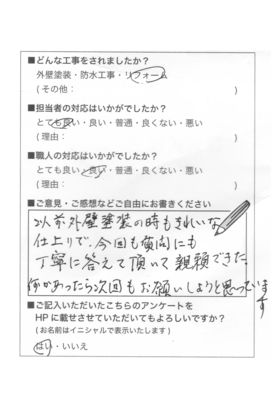 ■どんな工事をされましたか？
外壁塗装・防水工事・リフォーム
（その他：　　　　　　　　　）
■担当者の対応はいかがでしたか？
とても良い・良い・普通・良くない・悪い
（理由：　　　　　　　　　）
■職人の対応はいかがでしたか？
とても良い・良い・普通・良くない・悪い
（理由：　　　　　　　　　）
■ご意見・ご感想などご自由にお書きください
以前外壁塗装の時もきれいな
仕上りで、今回も質問にも
丁寧に答えて頂いて親頼できた。
何かあったら次回もお願いしようと思っています
■ご記入いただいたこちらのアンケートを
HPに載せさせていただいてもよろしいですか？
（お名前はイニシャルで表示いたします）
はい・いいえ